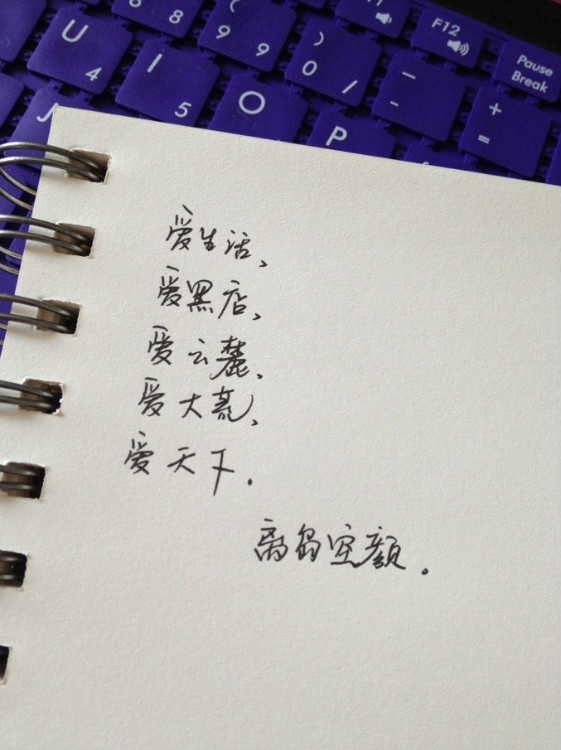 8 8
( 9 9
F12
Pause Break
U 4
I 5
) 0 /
- -
+ =
J
O
P
爱生活、
爱黑店、
爱云麓、
爱大荒、
爱天下.
离岛空颜.